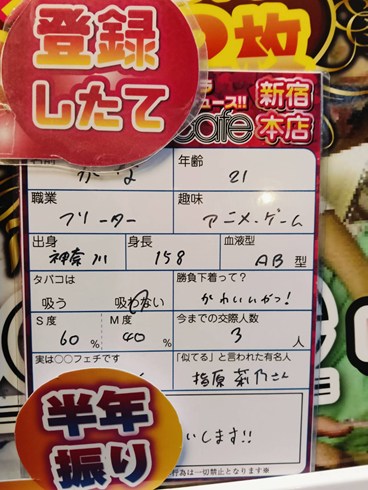 登録
したて
枚
ュース!!
新宿
本店
cafe
年齢
かな
21
職業
趣味
フリーター
アニメ・ゲーム
出身
身長
血液型
神奈川
158
AB型
タバコは
勝負下着って?
吸う
吸わない
かわいいがっ!
S度
M度
今までの交際人数
60%
40%
3人
実は○○フェチです
「似てる」と言われた有名人
指原莉乃さん
半年
振り
いします!!
行為は一切禁止となります※